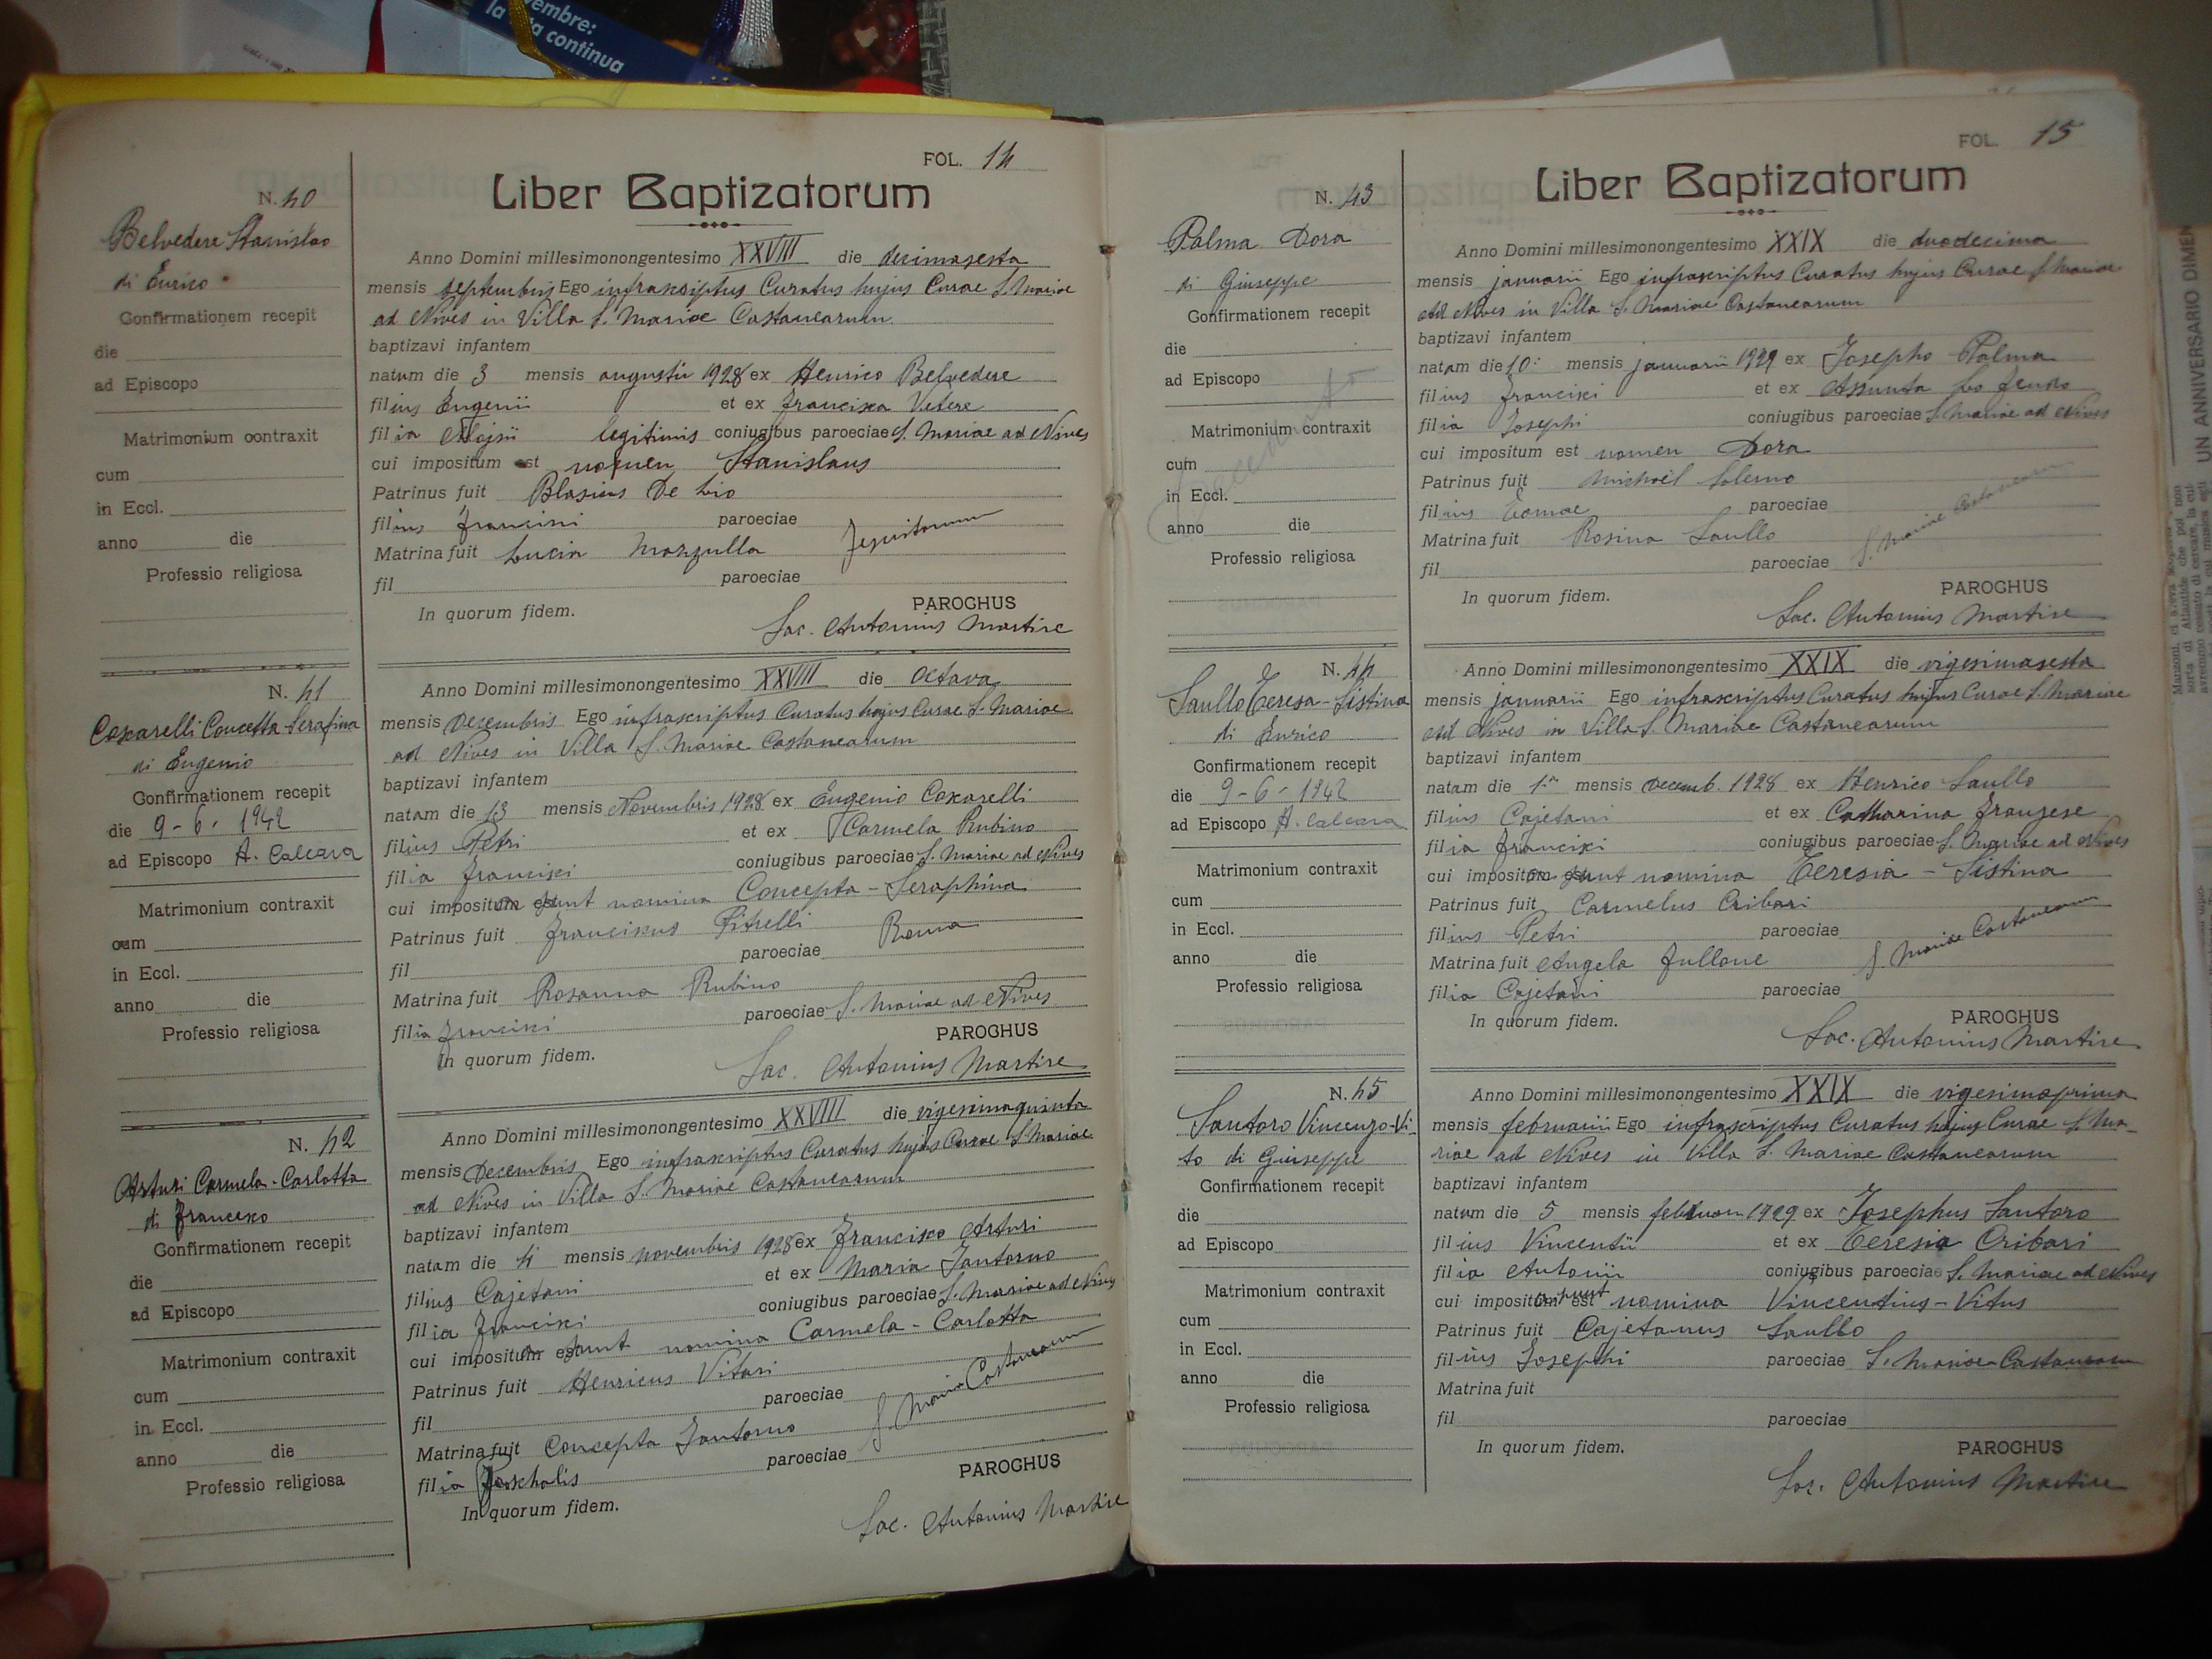 vembre:
la continua
FOL. 14
Liber Baptizatorum
N. 40
Belvedere Stanislao
di Enrico
Confirmationem recepit
die
ad Episcopo
Matrimonium contraxit
cum
in Eccl.
anno die
Professio religiosa
Anno Domini millesimonongentesimo XXVIII die decimasesta
mensis septembris Ego infrascriptus Curatus hujus Curae S. Mariae
ad Nives in Villa S. Mariae Castanearum
baptizavi infantem
natum die 3 mensis augusti 1928 ex Henrico Belvedere
filius Eugenii et ex Francisca Vetere
filia Alojsii legitimis coniugibus paroeciae S. Mariae ad Nives
cui impositum est nomen Stanislaus
Patrinus fuit Blasius De Lio
filius Francisci paroeciae
Matrina fuit Lucia Manzulla Jesuitorum
fil paroeciae
In quorum fidem. PAROCHUS
Sac. Antonius Martire
N. 41
Coscarelli Concetta-Serafina
di Eugenio
Confirmationem recepit
die 9-6-1942
ad Episcopo A. Calcara
Matrimonium contraxit
cum
in Eccl.
anno die
Professio religiosa
Anno Domini millesimonongentesimo XXVIII die octava
mensis Decembris Ego infrascriptus Curatus hujus Curae S. Mariae
ad Nives in Villa S. Mariae Castanearum
baptizavi infantem
natam die 13 mensis Novembris 1928 ex Eugenio Coscarelli
filius Petri et ex Carmela Rubino
filia Francisci coniugibus paroeciae S. Mariae ad Nives
cui imposita sunt nomina Concepta - Seraphina
Patrinus fuit Franciscus Pitrelli
fil paroeciae Roma
Matrina fuit Rosanna Rubino
filia Francisci paroeciae S. Mariae ad Nives
In quorum fidem. PAROCHUS
Sac. Antonius Martire
N. 42
Arturi Carmela-Carlotta
di Francesco
Confirmationem recepit
die
ad Episcopo
Matrimonium contraxit
cum
in Eccl.
anno die
Professio religiosa
Anno Domini millesimonongentesimo XXVIII die vigesimaquinta
mensis Decembris Ego infrascriptus Curatus hujus Curae S. Mariae
ad Nives in Villa S. Mariae Castanearum
baptizavi infantem
natam die 4 mensis novembris 1928 ex Francisco Arturi
filius Cajetani et ex Maria Iantorno
filia Francisci coniugibus paroeciae S. Mariae ad Nives
cui imposita sunt nomina Carmela - Carlotta
Patrinus fuit Henricus Vitari
fil paroeciae S. Mariae Castanearum
Matrina fuit Concepta Iantorno
filia Paschalis paroeciae
In quorum fidem. PAROCHUS
Sac. Antonius Martire
FOL. 15
Liber Baptizatorum
N. 43
Palma Dora
di Giuseppe
Confirmationem recepit
die
ad Episcopo
Matrimonium contraxit
cum
in Eccl.
anno die
Professio religiosa
Anno Domini millesimonongentesimo XXIX die duodecima
mensis januarii Ego infrascriptus Curatus hujus Curae S. Mariae
ad Nives in Villa S. Mariae Castanearum
baptizavi infantem
natam die 10 mensis januarii 1929 ex Josepho Palma
filius Francisci et ex Assunta
filia Josephi coniugibus paroeciae S. Mariae ad Nives
cui impositum est nomen Dora
Patrinus fuit Michaël Salerno
filius Tomae paroeciae
Matrina fuit Rosina Saullo S. Mariae Castanearum
fil paroeciae
In quorum fidem. PAROCHUS
Sac. Antonius Martire
N. 44
Saullo Teresa-Sistina
di Enrico
Confirmationem recepit
die 9-6-1942
ad Episcopo A. Calcara
Matrimonium contraxit
cum
in Eccl.
anno die
Professio religiosa
Anno Domini millesimonongentesimo XXIX die vigesimasesta
mensis januarii Ego infrascriptus Curatus hujus Curae S. Mariae
ad Nives in Villa S. Mariae Castanearum
baptizavi infantem
natam die 1a mensis Decemb. 1928 ex Henrico Saullo
filius Cajetani et ex Catharina Franzese
filia Francisci coniugibus paroeciae S. Mariae ad Nives
cui imposita sunt nomina Teresia - Sistina
Patrinus fuit Carmelus Cribari
filius Petri paroeciae
Matrina fuit Angela Fullone S. Mariae Castanearum
filia Cajetani paroeciae
In quorum fidem. PAROCHUS
Sac. Antonius Martire
N. 45
Santoro Vincenzo-Vi-
to di Giuseppe
Confirmationem recepit
die
ad Episcopo
Matrimonium contraxit
cum
in Eccl.
anno die
Professio religiosa
Anno Domini millesimonongentesimo XXIX die vigesimaprima
mensis februarii Ego infrascriptus Curatus hujus Curae S. Ma-
riae ad Nives in Villa S. Mariae Castanearum
baptizavi infantem
natum die 5 mensis februar 1929 ex Josephus Santoro
filius Vincentii et ex Teresia Cribari
filia Antonii coniugibus paroeciae S. Mariae ad Nives
cui imposita sunt nomina Vincentius - Vitus
Patrinus fuit Cajetanus Saullo
filius Josephi paroeciae S. Mariae Castanearum
Matrina fuit
fil paroeciae
In quorum fidem. PAROCHUS
Sac. Antonius Martire
UN ANNIVERSARIO DIMEN